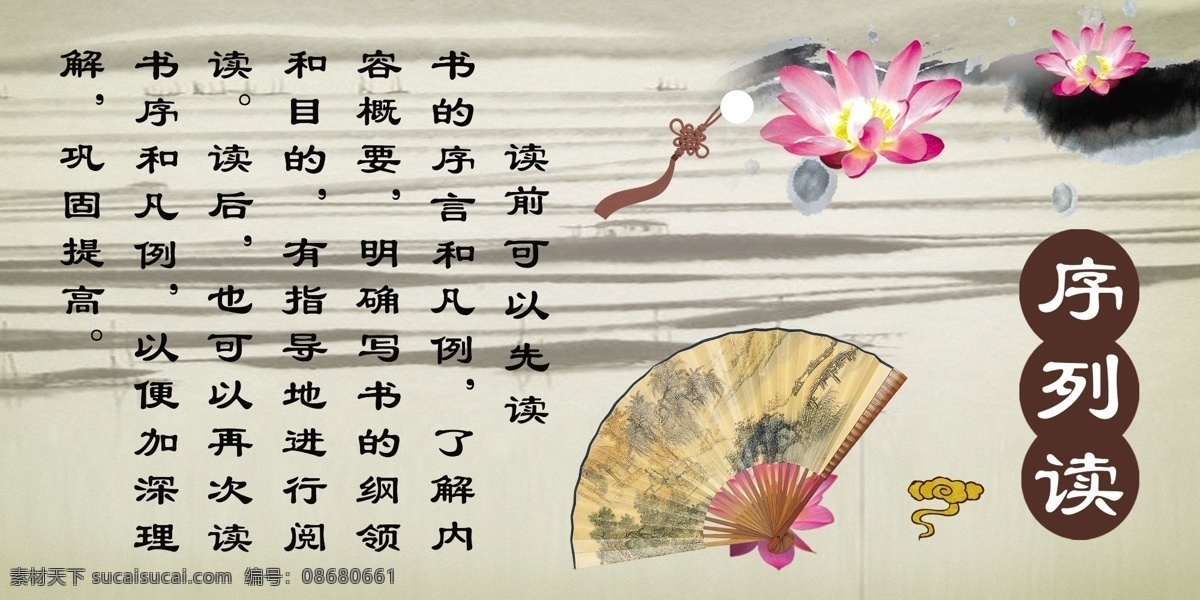 序列读
读前可以先读
书的序言和凡例，了解内
容概要，明确写书的纲领
和目的，有指导地进行阅
读。读后，也可以再次读
书序和凡例，以便加深理
解，巩固提高。
素材天下 sucaisucai.com 编号：08680661